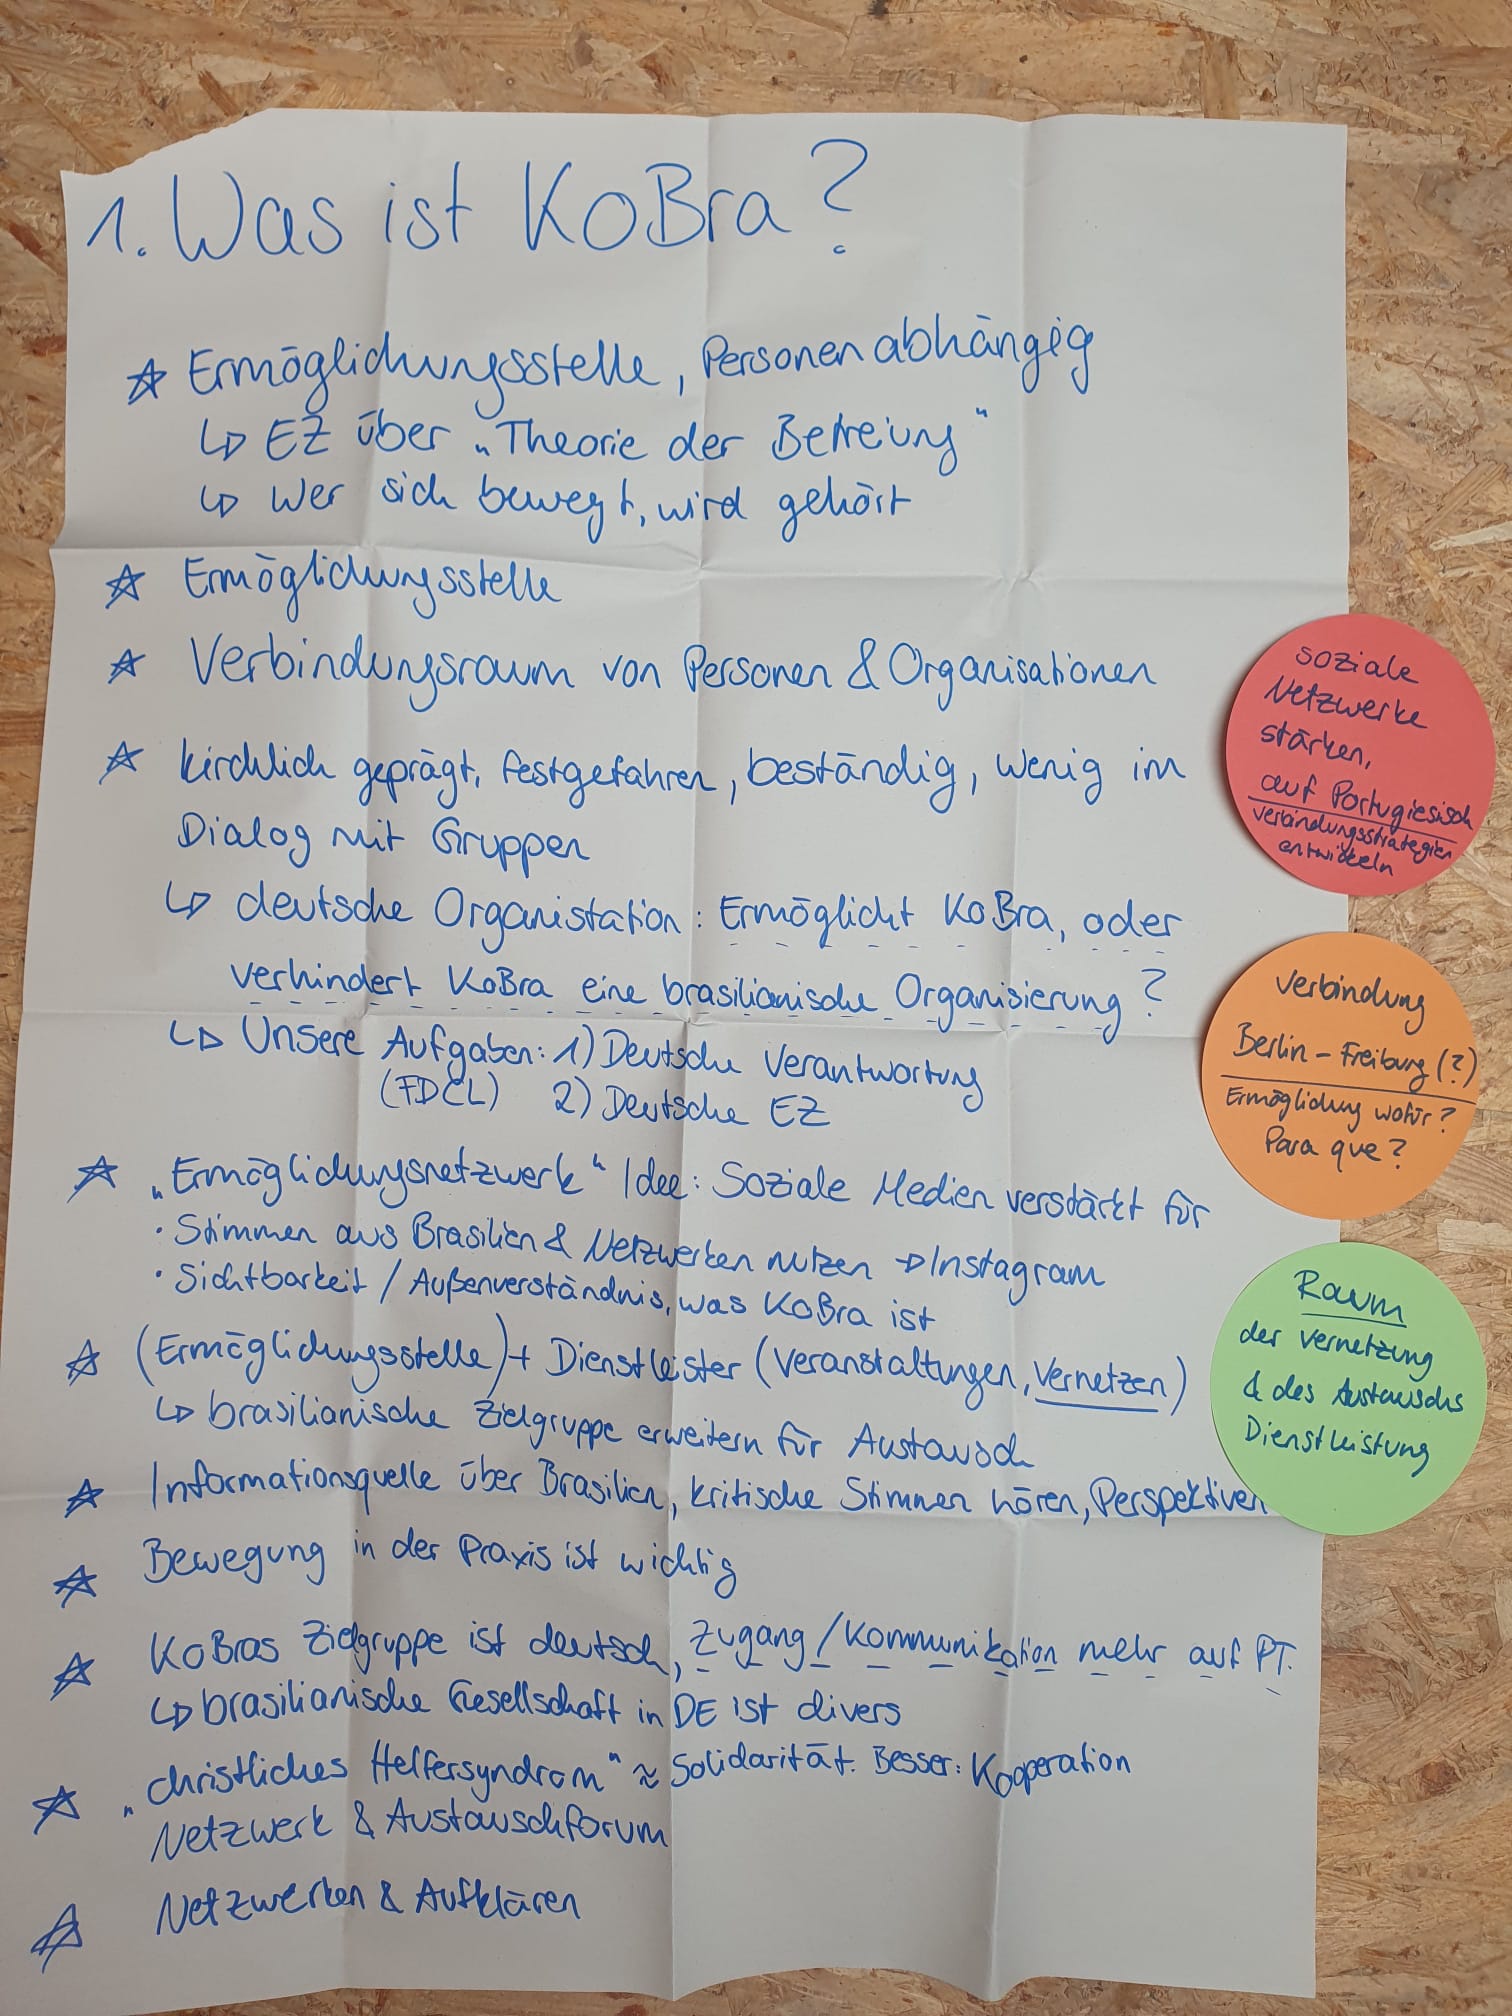 1. Was ist KoBra?
☆ Ermöglichungsstelle, Personenabhängig
↳ EZ über „Theorie der Befreiung"
↳ Wer sich bewegt, wird gehört
☆ Ermöglichungsstelle
☆ Verbindungsraum von Personen & Organisationen
☆ kirchlich geprägt, festgefahren, beständig, wenig im
Dialog mit Gruppen
↳ deutsche Organistation: Ermöglicht KoBra, oder
verhindert KoBra eine brasilianische Organisierung?
↳ Unsere Aufgaben: 1) Deutsche Verantwortung
(FDCL) 2) Deutsche EZ
☆ „Ermöglichungsnetzwerk" Idee: Soziale Medien verstärkt für
· Stimmen aus Brasilien & Netzwerken nutzen → Instagram
· Sichtbarkeit / Außenverständnis, was KoBra ist
☆ (Ermöglichungsstelle) + Dienstleister (Veranstaltungen, Vernetzen)
↳ brasilianische Zielgruppe erweitern für Austausch
☆ Informationsquelle über Brasilien, kritische Stimmen hören, Perspektiven
☆ Bewegung in der Praxis ist wichtig
☆ KoBras Zielgruppe ist deutsch, Zugang / Kommunikation mehr auf PT.
↳ brasilianische Gesellschaft in DE ist divers
☆ „christliches Helfersyndrom" ≈ Solidarität. Besser: Kooperation
Netzwerk & Austauschforum
☆ Netzwerken & Aufklären
soziale
Netzwerke
stärken,
auf Portugiesisch
Verbindungsstrategien
entwickeln
Verbindung
Berlin – Freiburg (?)
Ermöglichung wofür?
Para que?
Raum
der Vernetzung
& des Austauschs
Dienstleistung